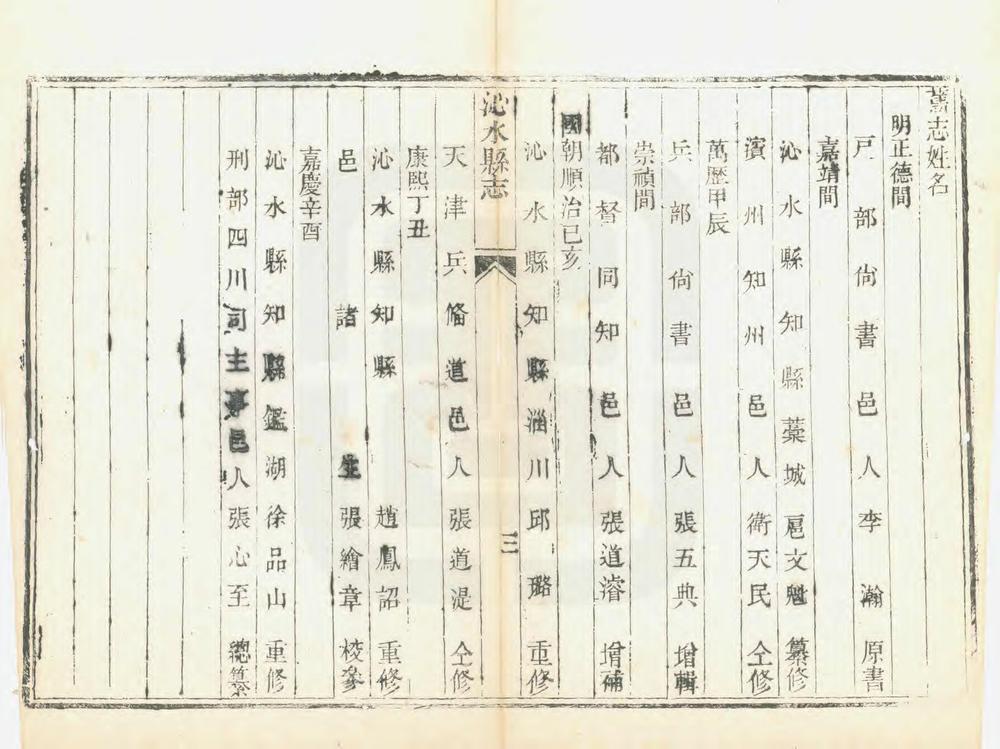 舊志姓名
明正德間
戸部尙書邑人李瀚原書
嘉靖間
沁水縣知縣藁城扈文魁纂修
濱州知州邑人衛天民仝修
萬歷甲辰
兵部尙書邑人張五典增輯
崇禎間
都督同知邑人張道濬增補
國朝順治已亥
沁水縣知縣淄川邱璐重修
沁水縣志
三
天津兵備道邑人張道湜仝修
康熙丁丑
沁水縣知縣趙鳳詔重修
邑諸生張繪章校參
嘉慶辛酉
沁水縣知縣鑑湖徐品山重修
刑部四川司主事邑人張心至總纂